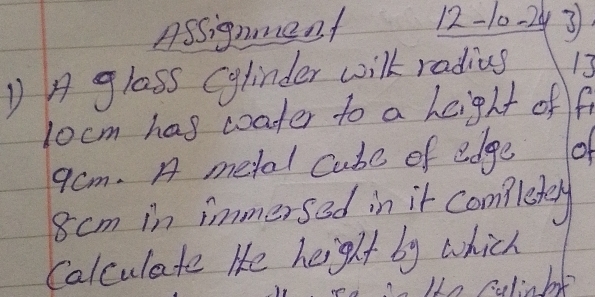 Assignment 12-10-24 3)
1) A glass cylinder with radius 13
10cm has water to a height of
9cm. A metal cube of edge of
8cm in immersed in it completely
Calculate the height by which